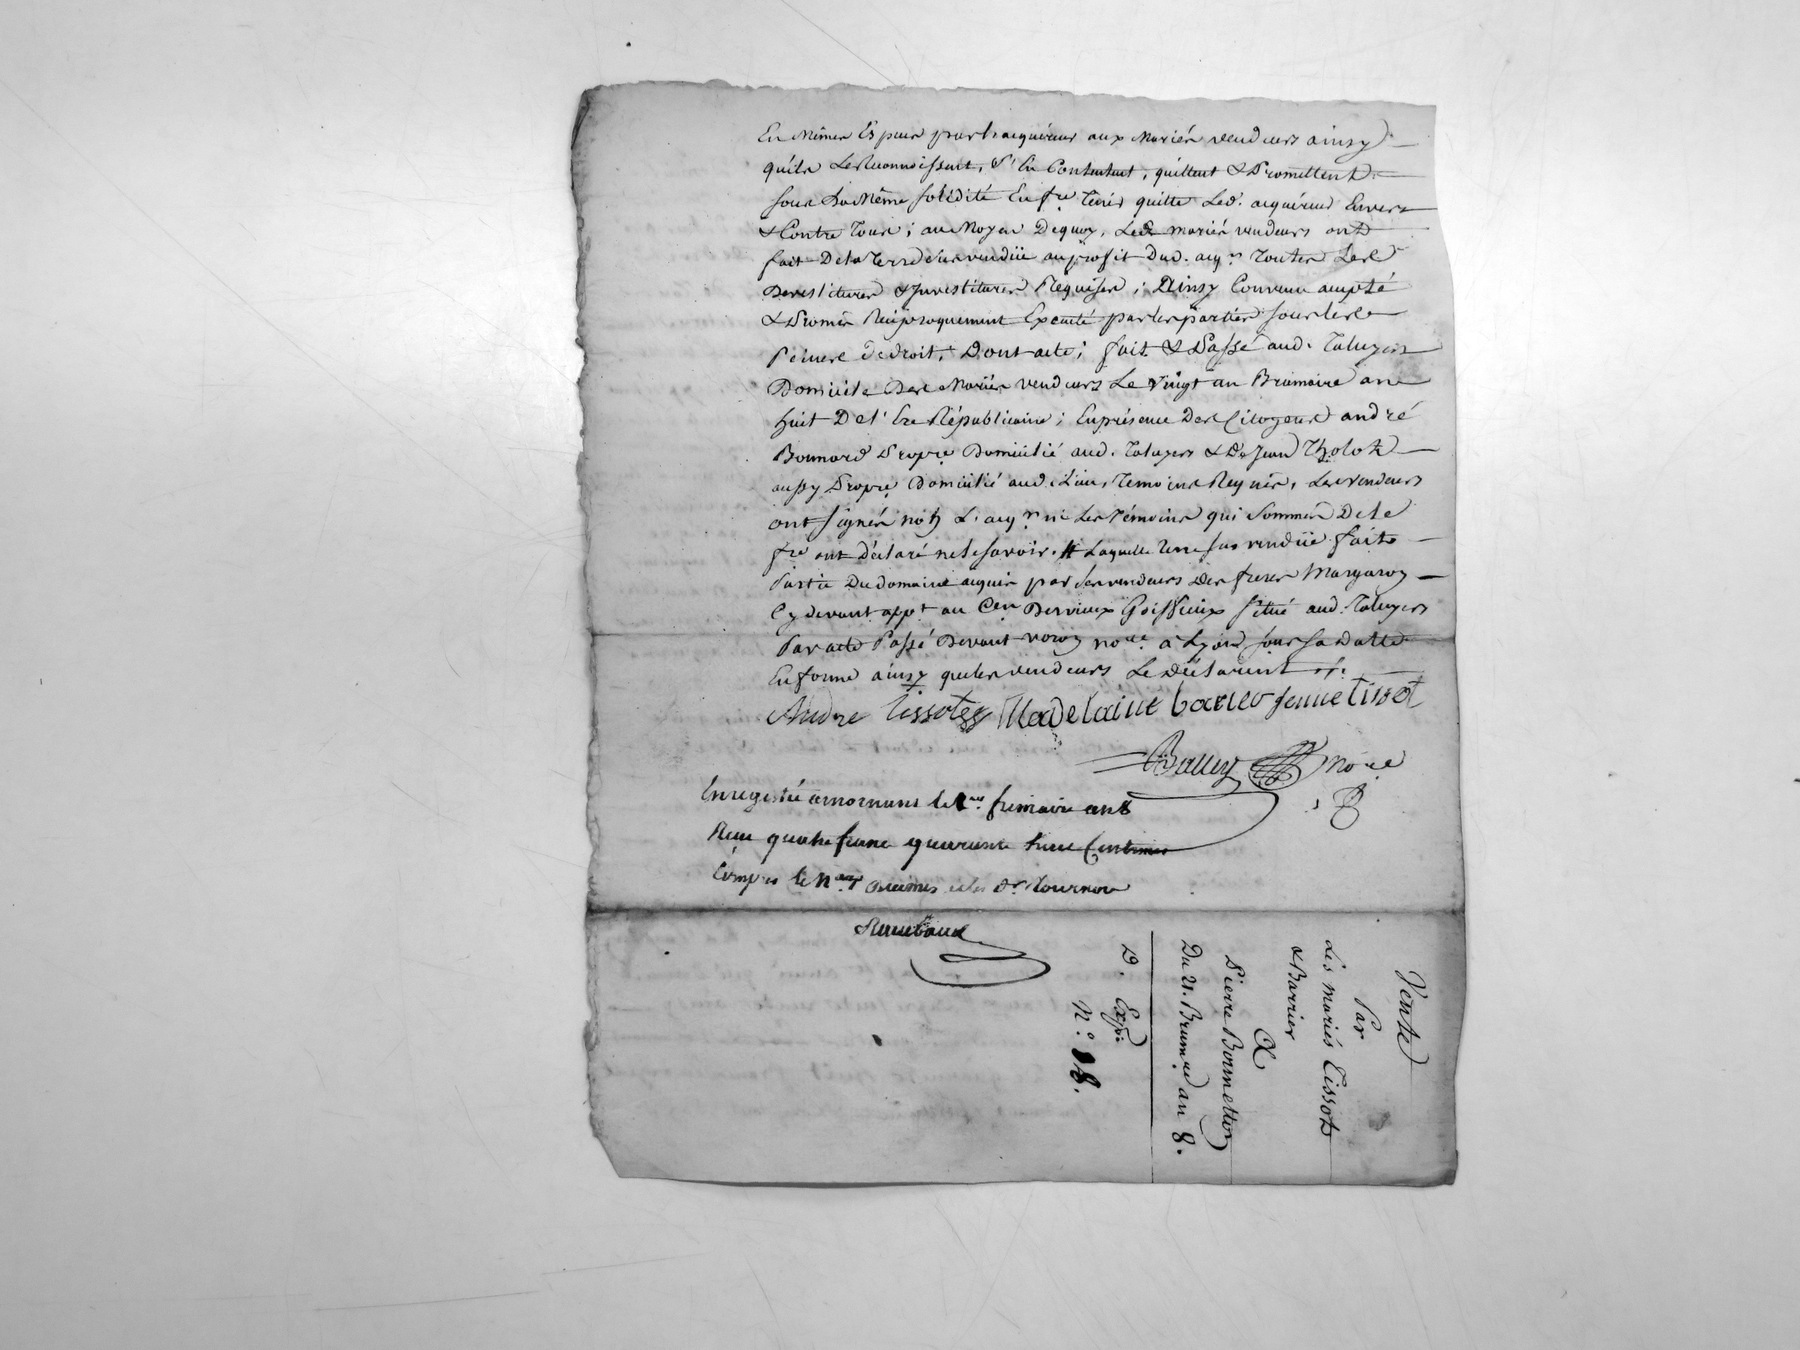 En Mêmes Especes par l'acquéreur aux Mariés vendeurs ainsy
qu'ils Le Reconnoissent, S'En Contentent, quittent & Promettent
sous La Même solidité En fre tenir quitte Led. acquéreur Envers
& Contre Tous ; au Moyen Dequoy, Lesd mariés vendeurs ont
fait De la Terre susvendüe au profit Dud. acqr Toutes Les
Devestitures & Investitures Requises ; Ainsy Convenu accepté
& Promis Réciproquement Executé par les parties sous les
Peines de droit, Dont acte ; fait & Passé aud. Taluyers
Domicile Des Mariés vendeurs Le Vingt un Brumaire an
huit De l'Ere Républicaine ; En présence Des Citoyens andré
Bonnard Propre Domicilié aud. Taluyers & De Jean Tholot
aussy Propre Domicilié aud. Lieu, Temoins Requis, Les vendeurs
ont signés non L'acqr ni Les Témoins qui Sommés De le
fre ont Déclaré ne le savoir. # Laquelle Terre sus vendüe faite
Partie Du domaine acquis par les vendeurs Des freres Margaron
Cy devant appt au Cen Dervieux Goiffieux situé aud. Taluyers
Par acte Passé Devant no.re a Lyon sous sa Datte
En forme ainsy que les vendeurs Le Déclarent
André Tissot Madelaine barier femme Tissot
Balley no.re
Enregistré a mornant le 1er frimaire an 8
Reçu quatre franc quarante Centimes
Compris le
Vente
Par
Les mariés Tissot
& Barrier
A
Pierre Bonnetton
Du 21. Brum.re an 8.
D. Exp.
N.° 18.